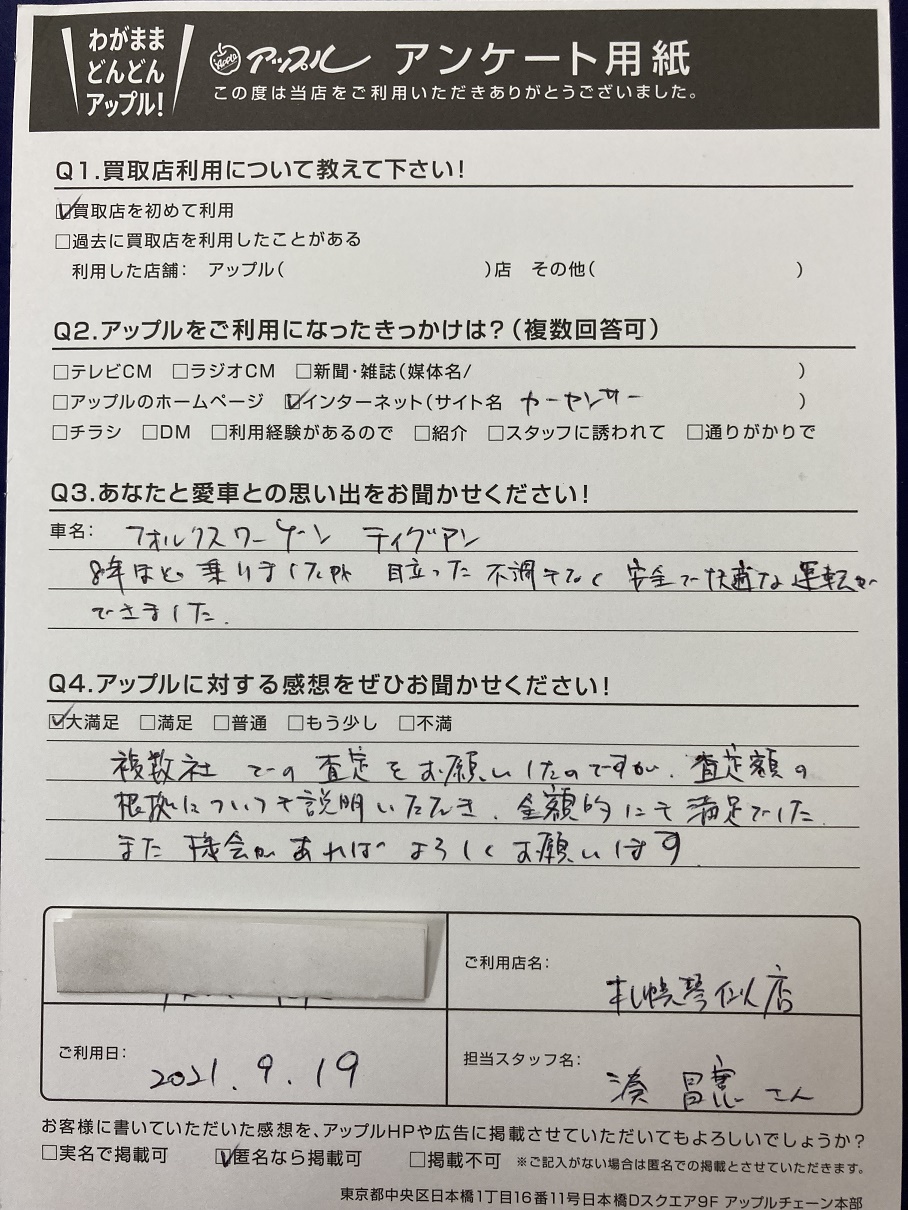 わがまま
どんどん
アップル!
Apple アップル アンケート用紙
この度は当店をご利用いただきありがとうございました。
Q1.買取店利用について教えて下さい!
☑買取店を初めて利用
□過去に買取店を利用したことがある
利用した店舗: アップル( )店 その他( )
Q2.アップルをご利用になったきっかけは?(複数回答可)
□テレビCM □ラジオCM □新聞・雑誌(媒体名/ )
□アップルのホームページ ☑インターネット(サイト名 カーセンサー )
□チラシ □DM □利用経験があるので □紹介 □スタッフに誘われて □通りがかりで
Q3.あなたと愛車との思い出をお聞かせください!
車名: フォルクスワーゲン ティグアン
8年ほど乗りましたが 目立った不調もなく 安全で快適な運転が
できました.
Q4.アップルに対する感想をぜひお聞かせください!
☑大満足 □満足 □普通 □もう少し □不満
複数社での査定をお願いしたのですが、査定額の
根拠についても説明いただき、金額的にも満足でした.
また機会があればよろしくお願いします.
ご利用店名:
札幌琴似店
ご利用日: 2021.9.19
担当スタッフ名:
湊 昌憲 さん
お客様に書いていただいた感想を、アップルHPや広告に掲載させていただいてもよろしいでしょうか?
□実名で掲載可 ☑匿名なら掲載可 □掲載不可 ※ご記入がない場合は匿名での掲載とさせていただきます。
東京都中央区日本橋1丁目16番11号日本橋Dスクエア9F アップルチェーン本部